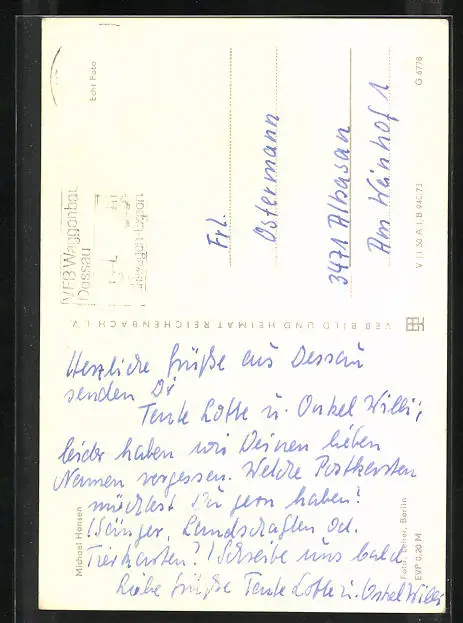 Herzliche Grüße aus Dessau
senden Dir
Tante Lotte u. Onkel Willi;
leider haben wir Deinen lieben
Namen vergessen. Welche Postkarten
möchtest Du gern haben?
(Sänger, Landschaften od.
Tierkarten?) Schreibe uns bald
Liebe Grüße Tante Lotte u. Onkel Willi
Michael Hansen
Foto: Lehel, Berlin
EVP 0,20 M
VEB BILD UND HEIMAT REICHENBACH I. V.
V 11 50 A 1 B 940/73
G 6778
Echt Foto
VEB Waggonbau
Dessau
Frl.
Ostermann
3471 Albaxan
Am Weinhof 1